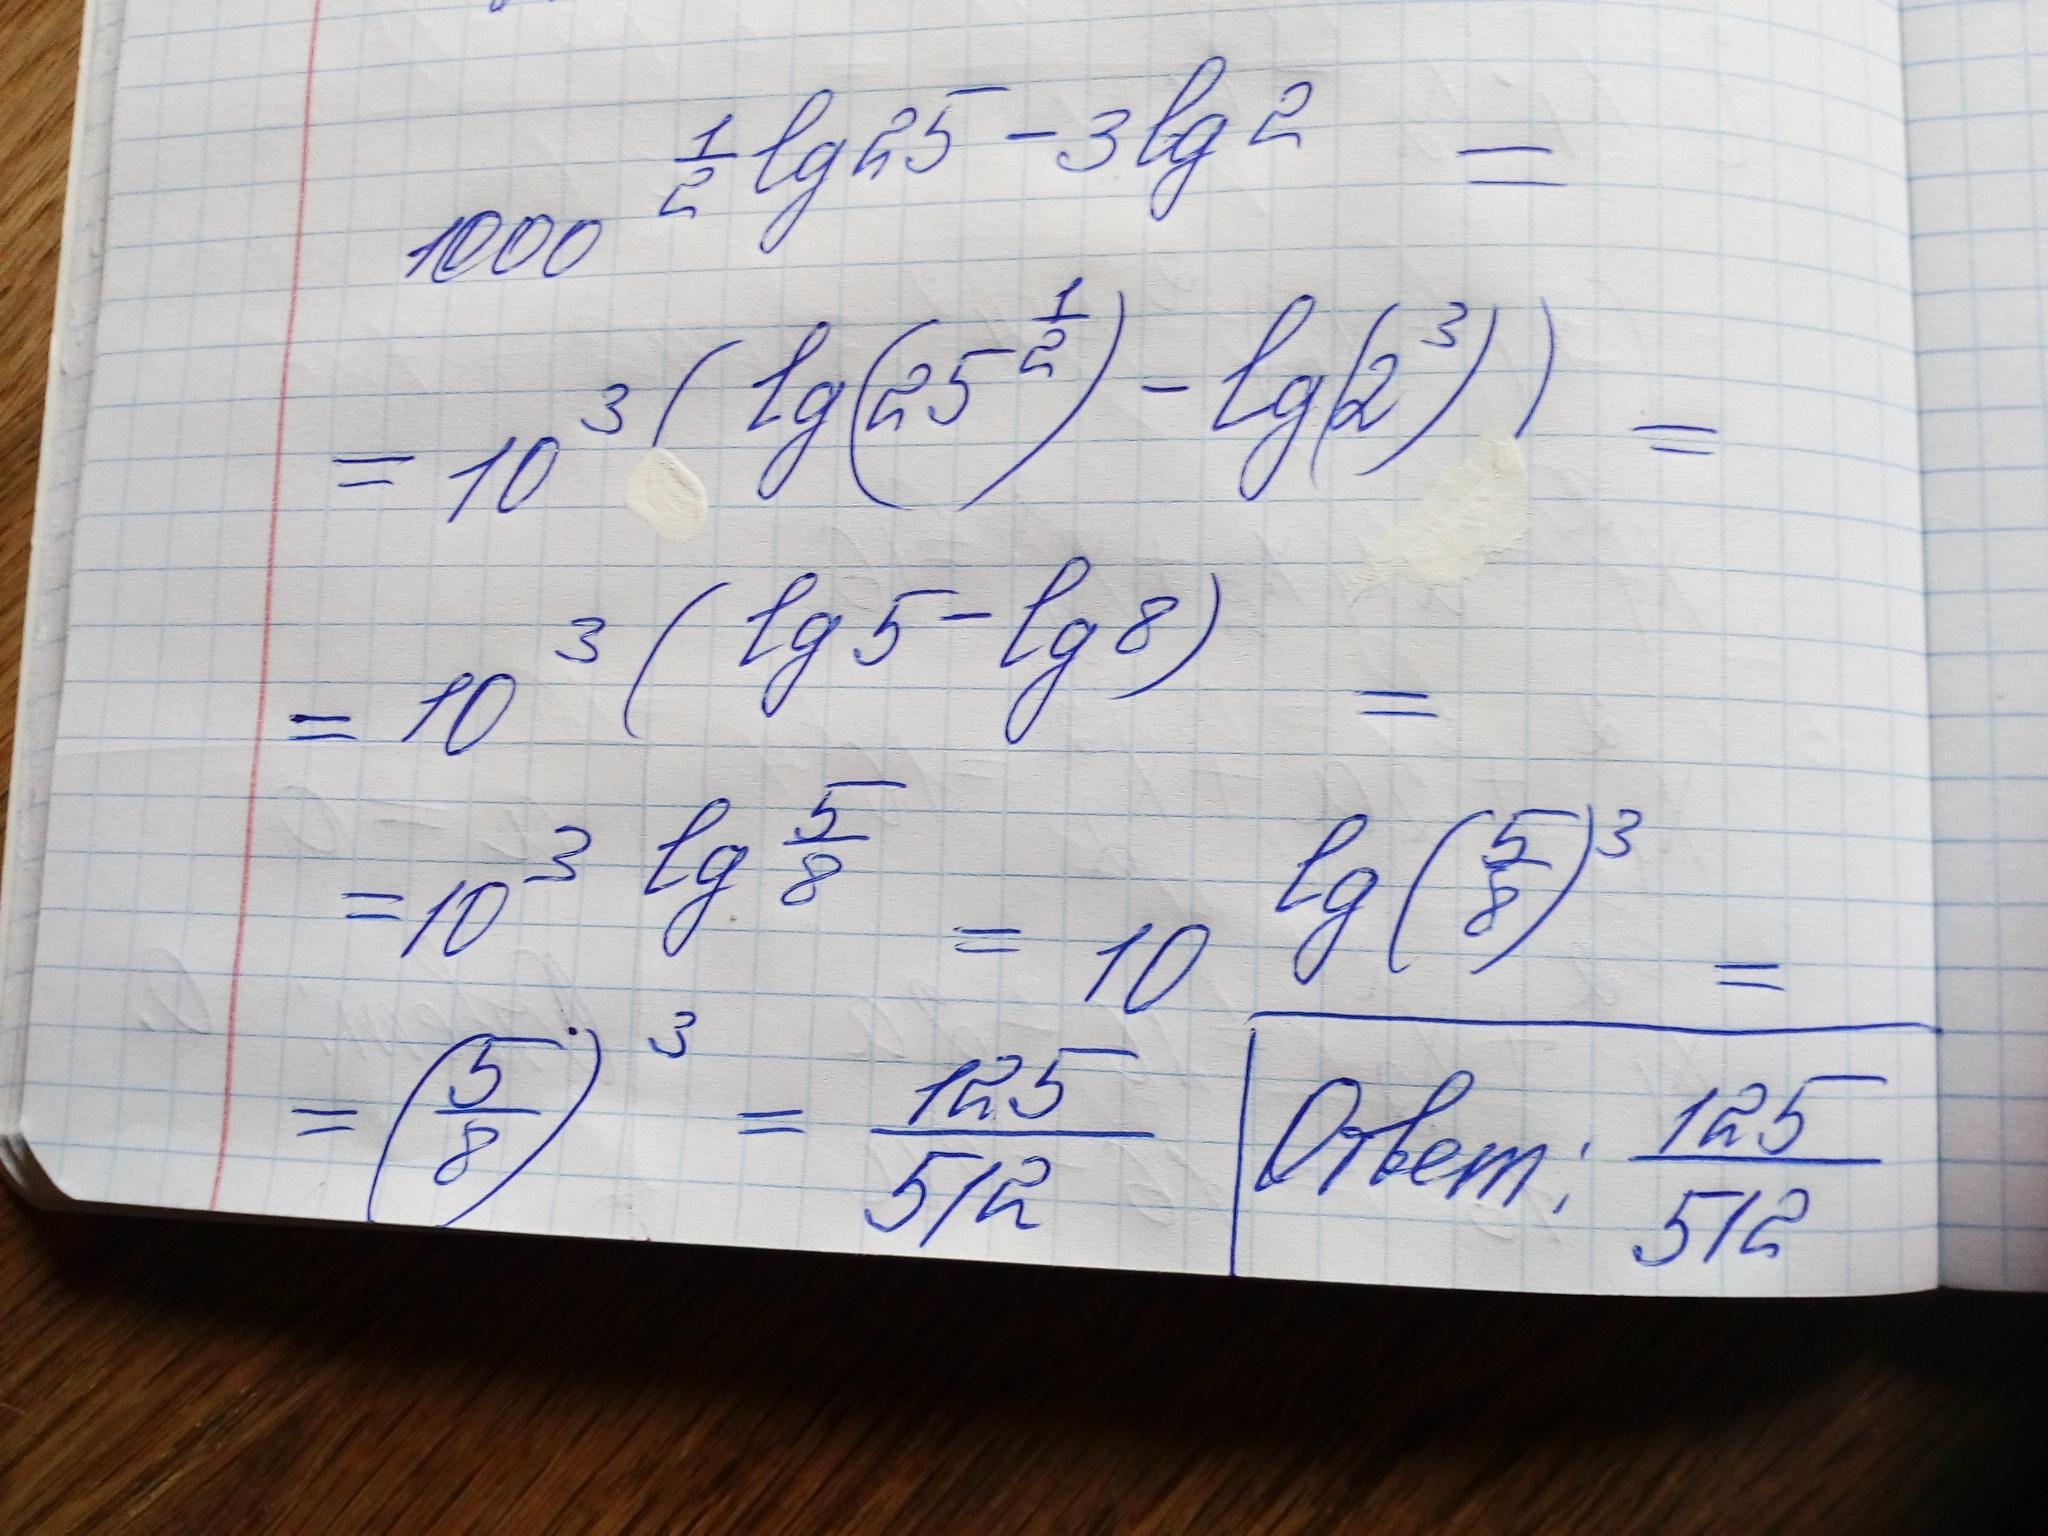 1000^{\frac{1}{2} lg 25 - 3 lg 2} =
= 10^{3(lg(25^{\frac{1}{2}}) - lg(2^3))} =
= 10^{3(lg 5 - lg 8)} =
= 10^{3 lg \frac{5}{8}} = 10^{lg(\frac{5}{8})^3} =
= (\frac{5}{8})^3 = \frac{125}{512}
Ответ: \frac{125}{512}